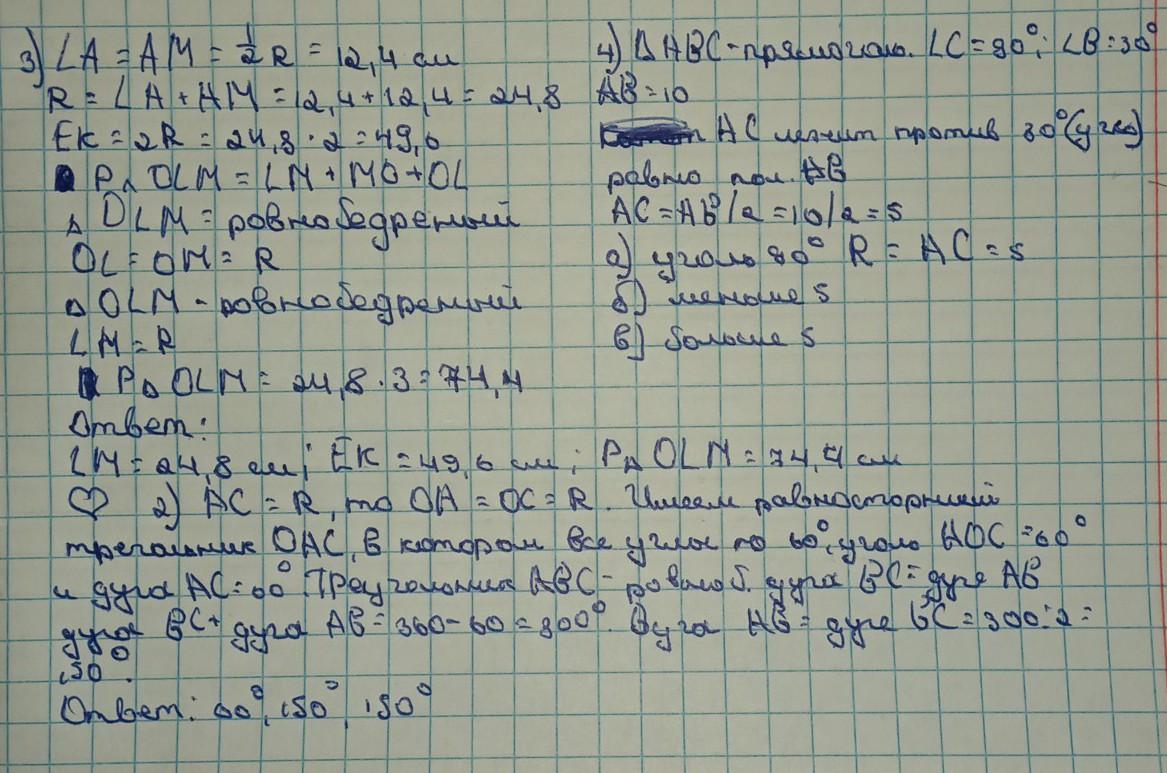 3) LA = AM = 1/2 R = 12,4 см
R = LA + AM = 12,4 + 12,4 = 24,8
EK = 2R = 24,8 · 2 = 49,6
P△ OLM = LM + MO + OL
△ OLM = ровнобедренный
OL = OM = R
△ OLM - ровнобедренный
LM = R
P△ OLM = 24,8 · 3 = 74,4
Ответ:
LM = 24,8 см; EK = 49,6 см; P△ OLM = 74,4 см
4) △ABC - прямоугол. ∠C = 90°; ∠B = 30°
AB = 10
AC лежит против 30° (угла)
равно пол. AB
AC = AB/2 = 10/2 = 5
а) уголь 90° R = AC = 5
б) меньше 5
в) больше 5
♡ 2) AC = R, то OA = OC = R. Имеем равносторонний
треугольник OAC, в котором все углы по 60°, уголь AOC = 60°
и дуга AC = 60°. Треугольник ABC - ровноб. дуга BC = дуге AB
дуга BC + дуга AB = 360 - 60 = 300°. Дуга AB = дуге BC = 300 : 2 =
150°.
Ответ: 60°, 150°, 150°